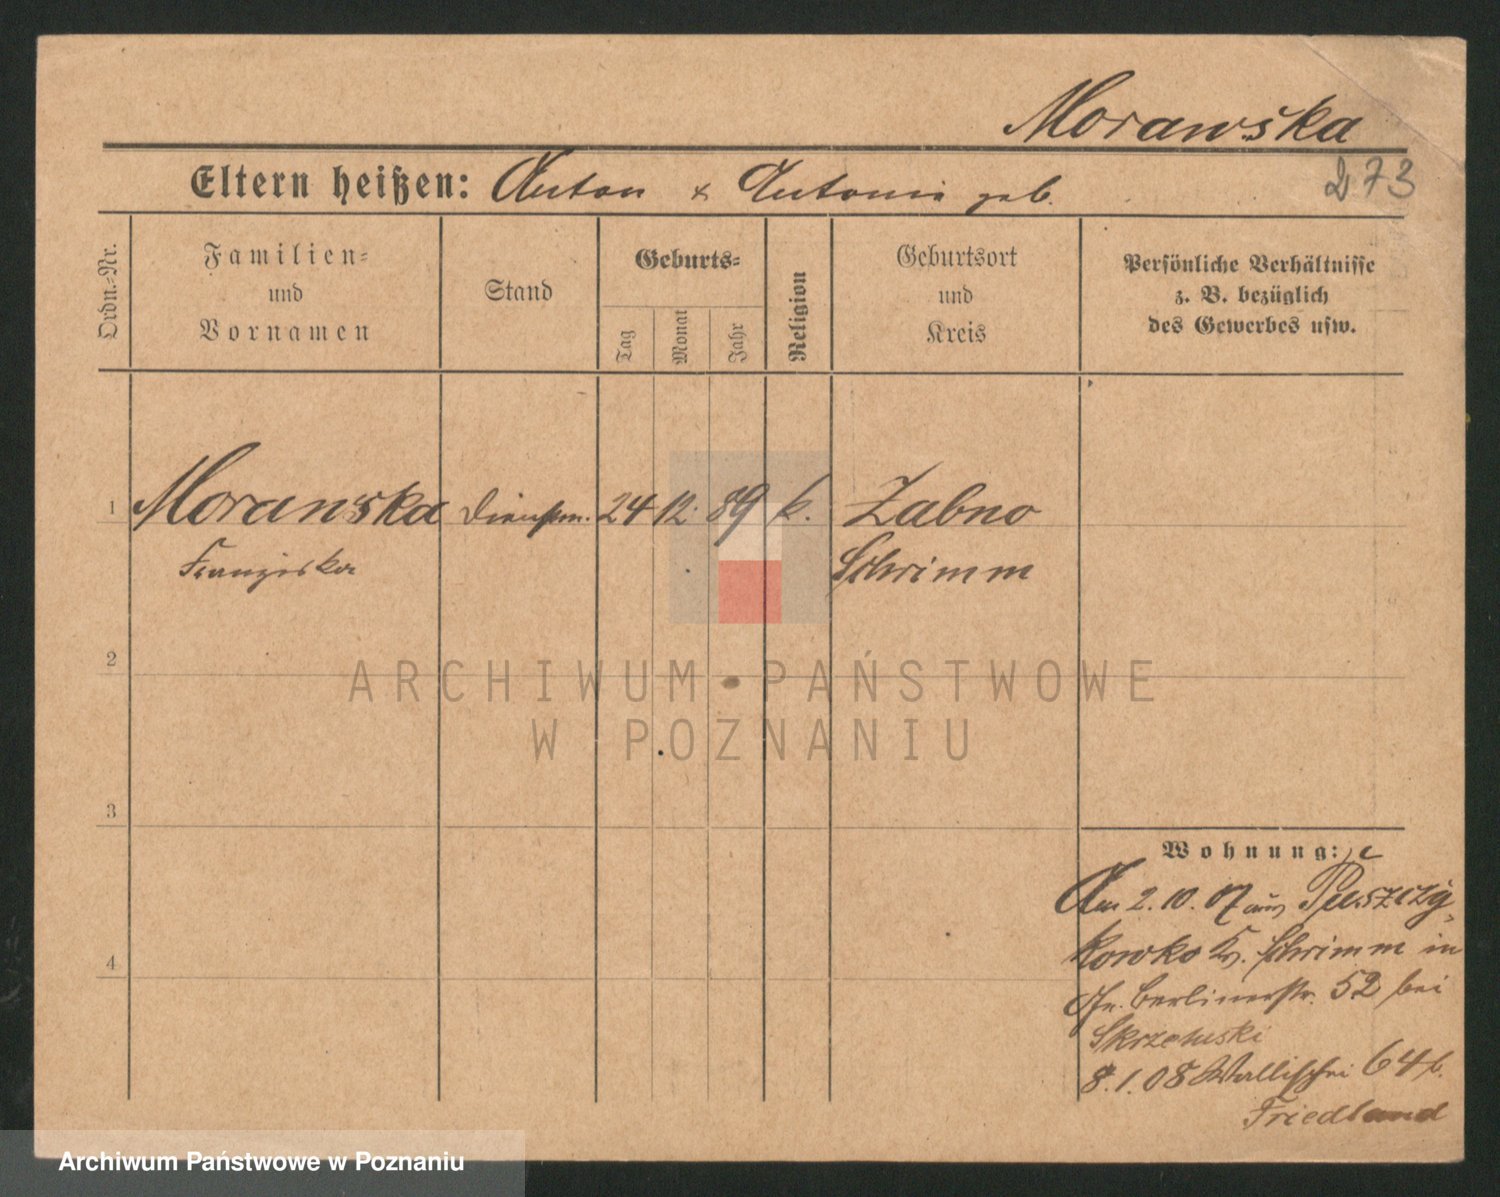 Morawska
273
Eltern heißen: Anton & Antonie geb.
Ordn.-Nr.
Familien-
und
Vornamen
Stand
Geburts-
Tag
Monat
Jahr
Religion
Geburtsort
und
Kreis
Persönliche Verhältnisse
z. B. bezüglich
des Gewerbes usw.
1 Morawska Dienstm. 24 12. 89 k. Zabno
Franziska Schrimm
2
3
4
Wohnung:
Am 2.10.07 aus Puszczy-
kowko Kr. Schrimm in
Berlinerstr. 52 bei
Skrzetuski
8.1.08 Wallischei 64 b.
Friedland
ARCHIWUM PAŃSTWOWE
W POZNANIU
Archiwum Państwowe w Poznaniu